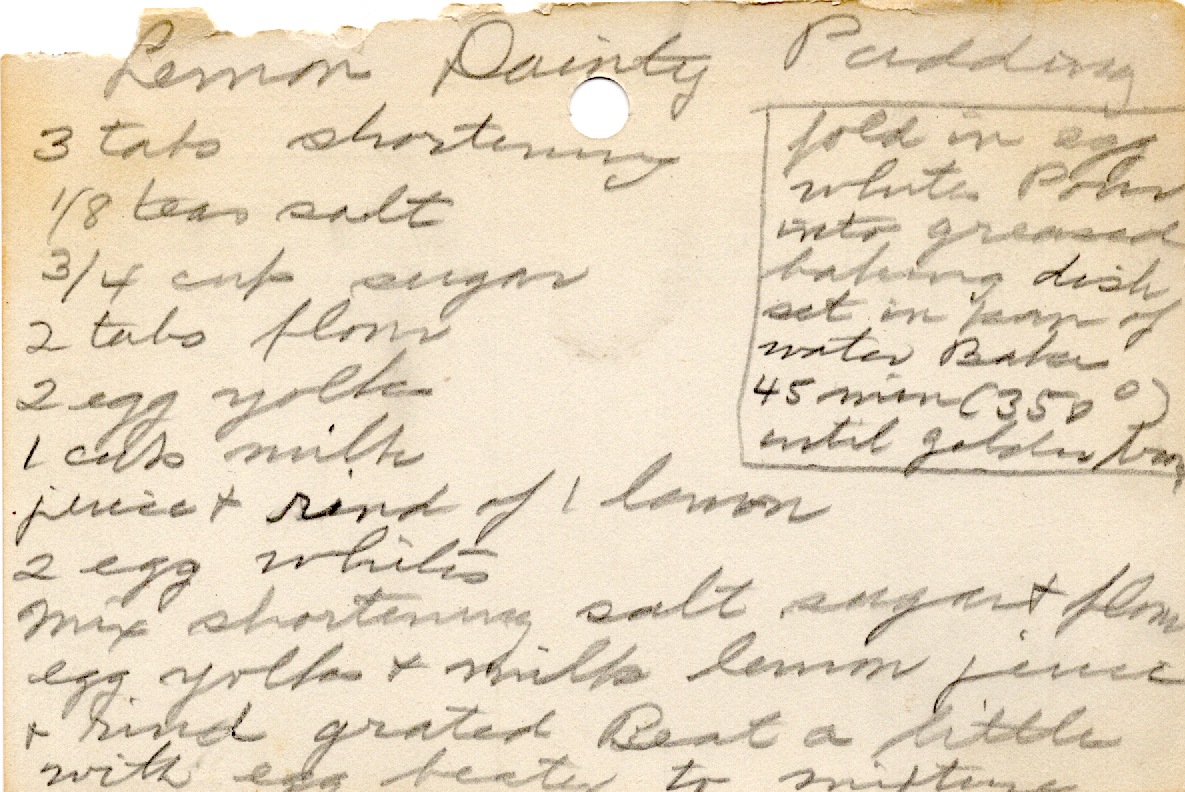 Lemon Dainty Pudding
3 tabs shortening
1/8 teas salt
3/4 cup sugar
2 tabs flour
2 egg yolks
1 cup milk
juice + rind of 1 lemon
2 egg whites
Mix shortening salt sugar + flour
egg yolks + milk lemon juice
+ rind grated Beat a little
with egg beater to mixture
fold in egg
whites Pour
into greased
baking dish
set in pan of
water Bake
45 min (350°)
until golden brown